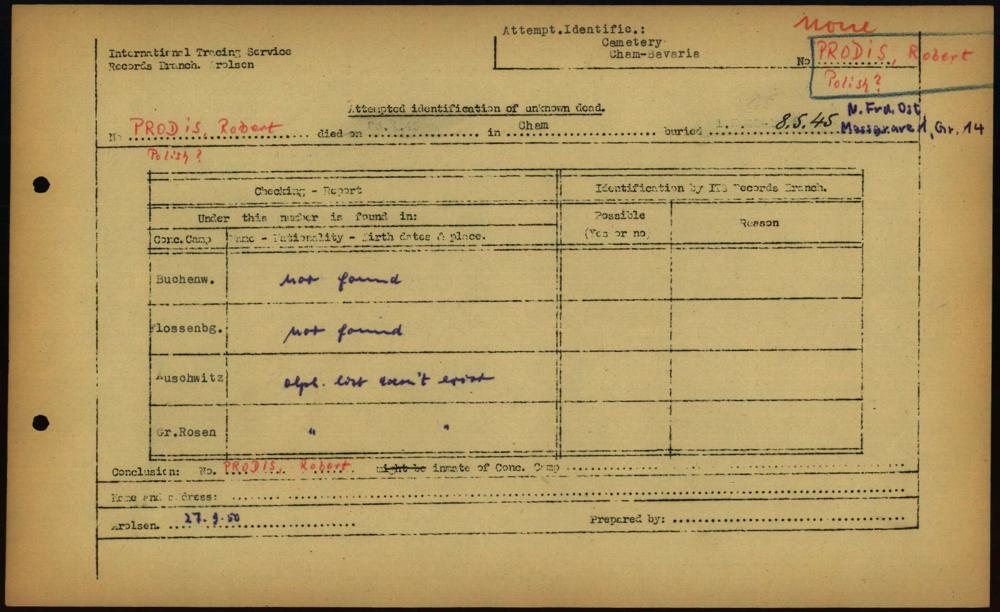 None
Attempt.Identific.:
Cemetery
Cham-Bavaria
International Tracing Service
Records Branch. Arolsen
No PRODIS, Robert
Polish?
Attempted identification of unknown dead.
No. PRODIS, Robert died on in Cham buried 8.5.45 N. Frd. Ost
Massgrave 1, Gr. 14
Polish?
Checking - Report
Identification by ITS Records Branch.
Under this number is found in:
Possible
(Yes or no)
Reason
Conc.Camp
Name - Nationality - Birth dates & place.
Buchenw. not found
Flossenbg. not found
Auschwitz alph. list doesn't exist
Gr.Rosen " "
Conclusion: No. PRODIS, Robert might be inmate of Conc. Camp
Name and address:
Arolsen. 27.9.50
Prepared by: